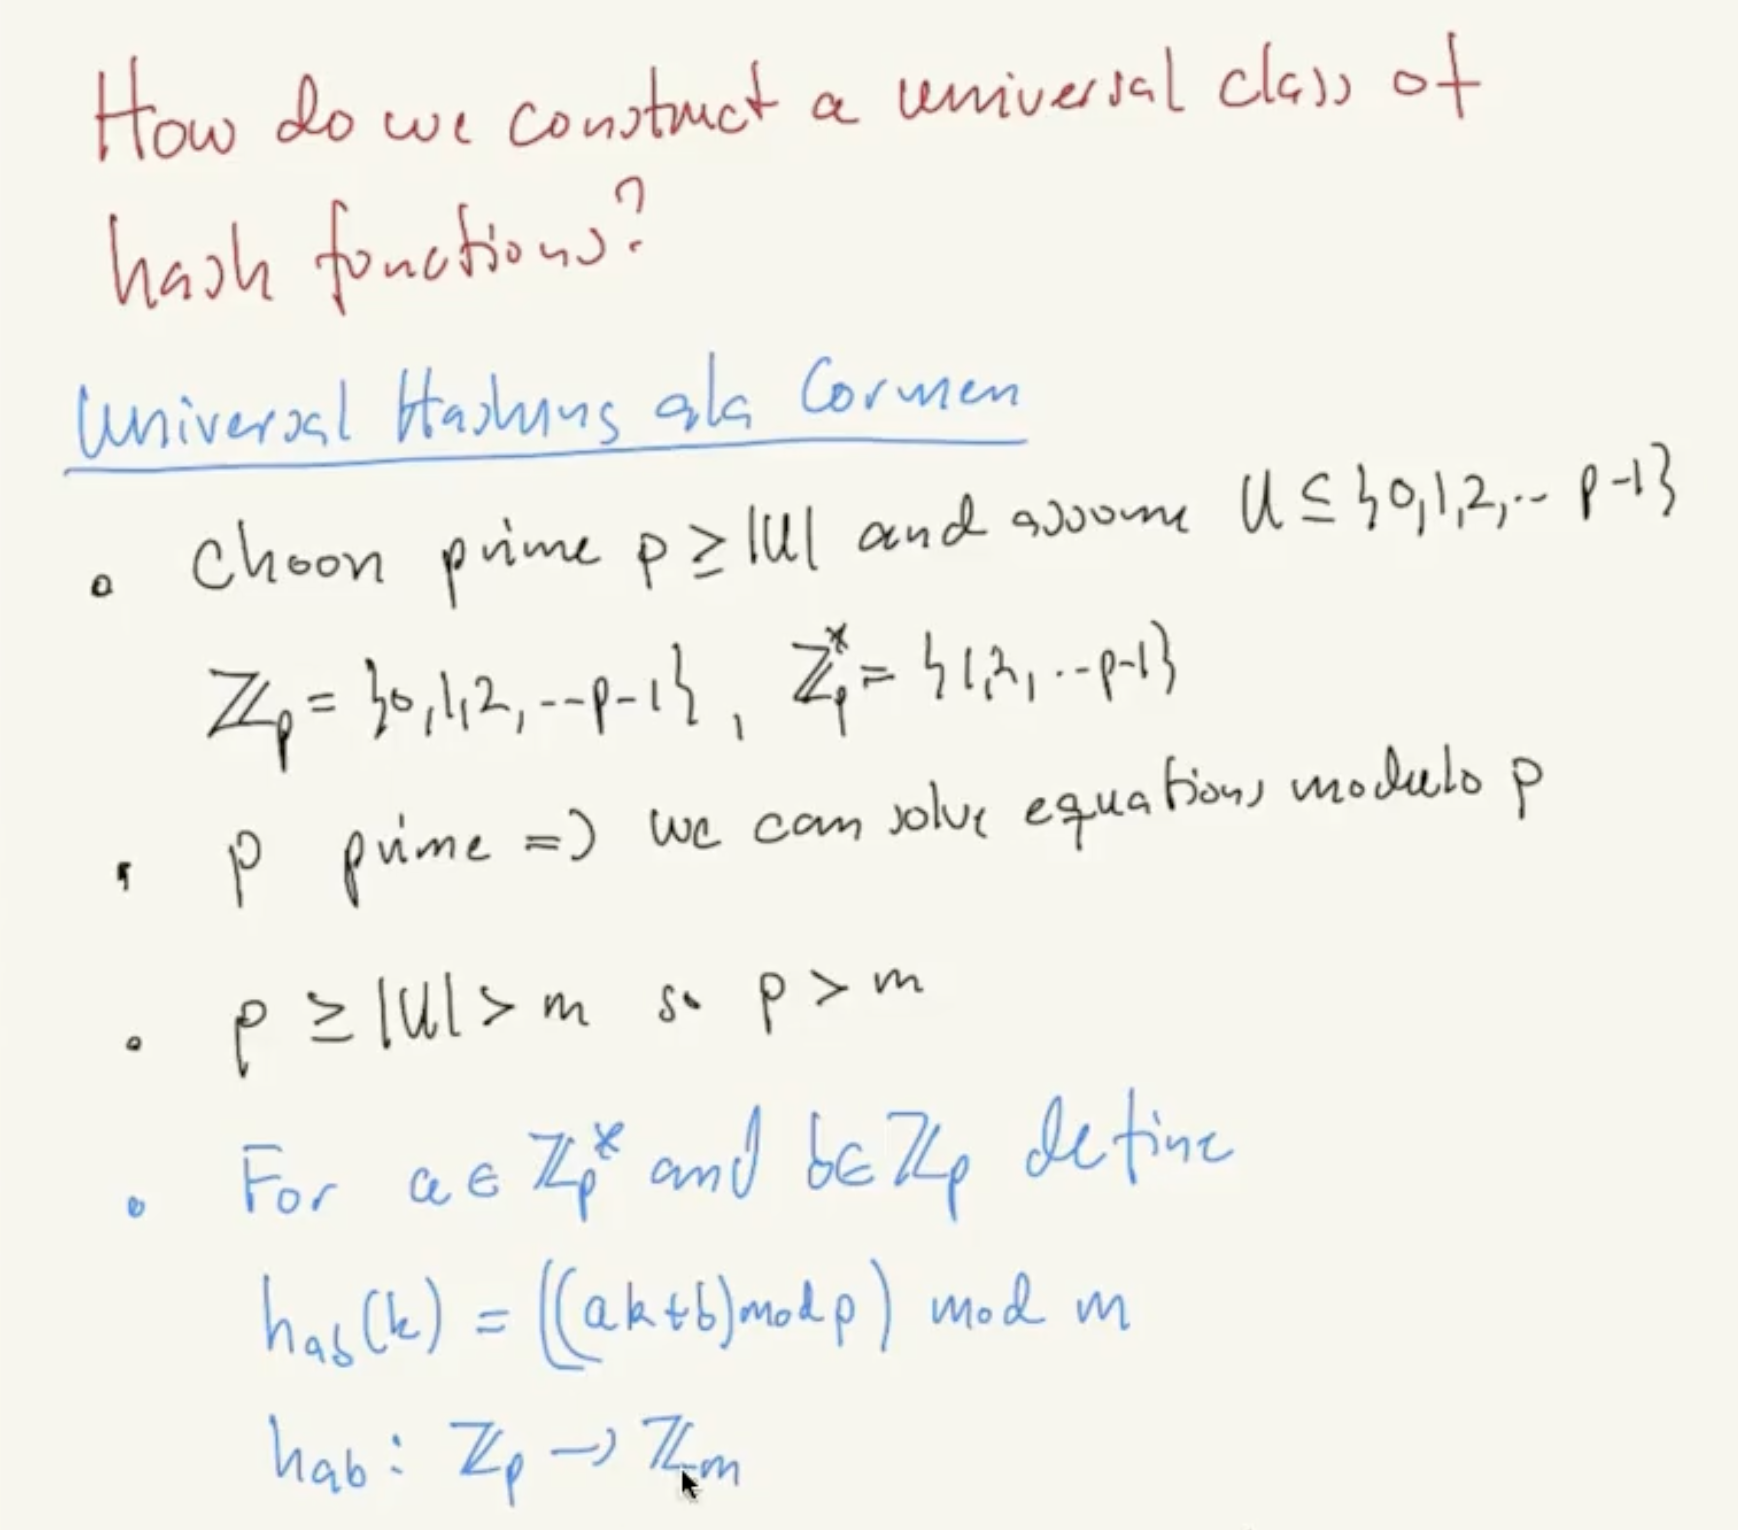 How do we construct a universal class of
hash functions?
Universal Hashing ala Cormen
• Choose prime p ≥ |U| and assume U ⊆ {0,1,2,... p-1}
ℤp = {0,1,2,...p-1}, ℤp* = {1,2,...p-1}
• p prime => we can solve equations modulo p
• p ≥ |U| > m so p > m
• For a ∈ ℤp* and b ∈ ℤp define
hab(k) = ((ak+b)mod p) mod m
hab: ℤp → ℤm